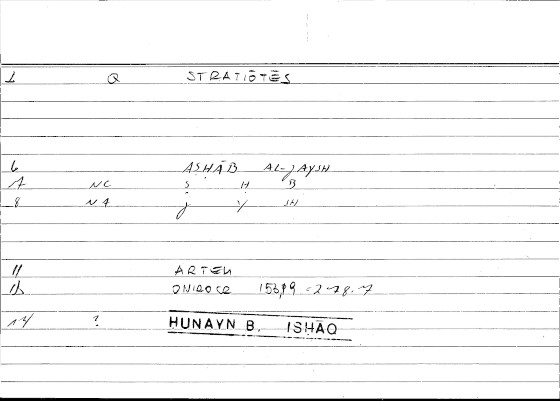 1 Q STRATIŌTĒS
6 AṢḤĀB AL-JAYSH
7 NC Ṣ Ḥ B
8 NA J Y SH
11 ARTEM
ONIROCR 153,19 = 278.7
14 ? HUNAYN B. ISḤĀQ